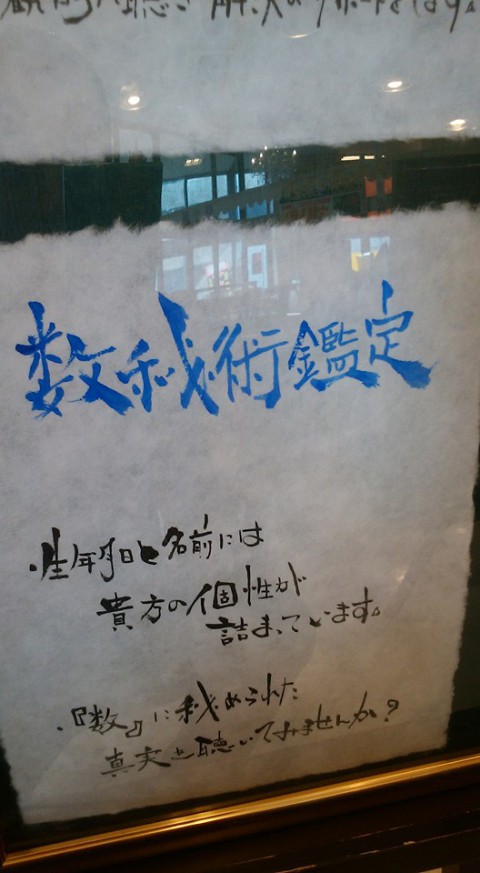 数秘術鑑定
・生年月日と名前には
貴方の個性が
詰まっています。
・『数』に秘められた
真実を聴いてみませんか?